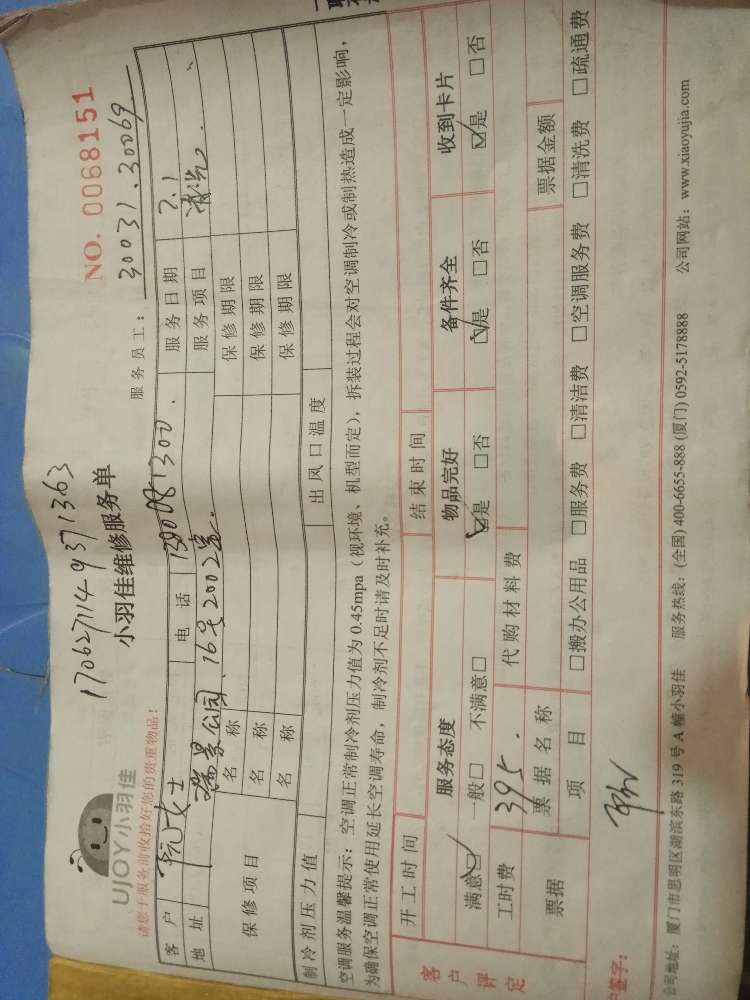 1706271149371363
NO. 0068151
UJOY小羽佳
小羽佳维修服务单
服务员工: 30031.30069
请您于服务前收拾好您的贵重物品!
客户 阮女士 电话 服务日期 7.1
地址 瑞景公园16号2002室. 服务项目 清洗
保修项目 名称 保修期限
名称 保修期限
名称 保修期限
制冷剂压力值 出风口温度
空调服务温馨提示: 空调正常制冷剂压力值为 0.45mpa (视环境、机型而定), 拆装过程会对空调制冷或制热造成一定影响,
为确保空调正常使用延长空调寿命, 制冷剂不足时请及时补充。
开工时间 结束时间
客户评定 服务态度 物品完好 备件齐全 收到卡片
满意☑ 一般□ 不满意□ ☑是 □否 ☑是 □否 ☑是 □否
工时费 395. 代购材料费
票据 票据名称 票据金额
项目 □搬办公用品 □服务费 □清洁费 □空调服务费 □清洗费 □疏通费
签字:
公司地址: 厦门市思明区湖滨东路 319 号 A 幢小羽佳 服务热线: (全国) 400-6655-888 (厦门) 0592-5178888 公司网站: www.xiaoyujia.com